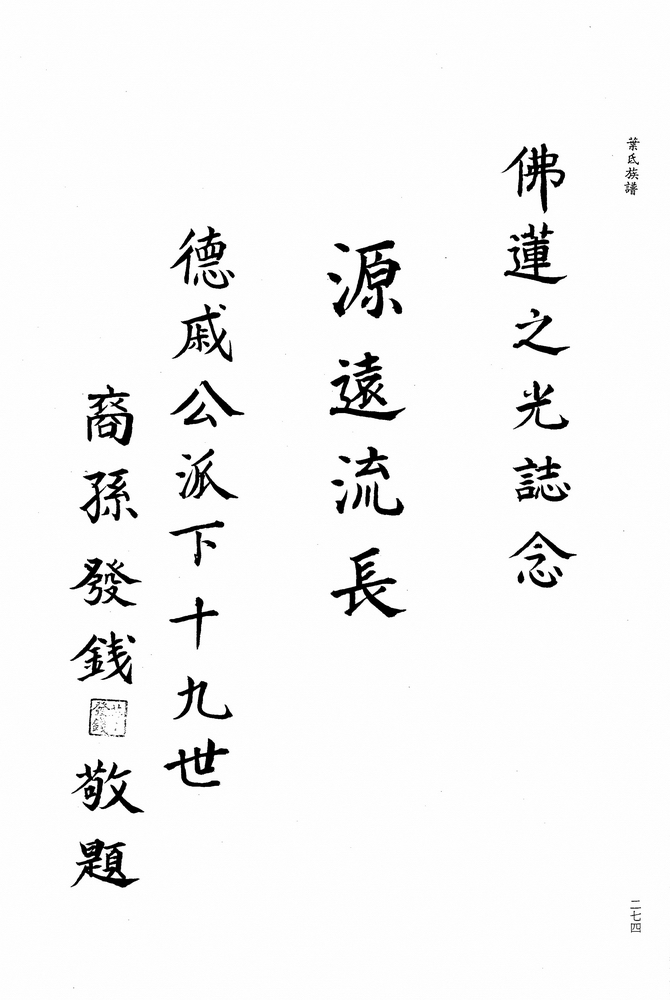 葉氏族譜
佛蓮之光誌念
源遠流長
德戚公派下十九世
裔孫發錢敬題
二七四